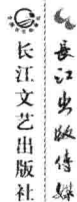 长江文艺出版社
長江出版传媒